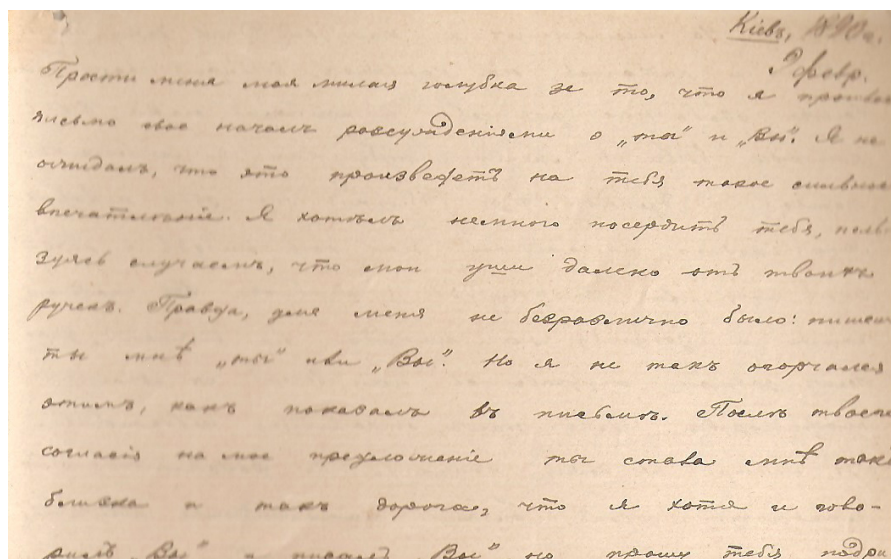 Кіевъ, 1890 г.
3 февр.
Прости меня моя милая голубка за то, что я
письмо свое началъ разсужденіями о „ты" и „Вы". Я не
ожидалъ, что это произведетъ на тебя такое сильное
впечатлѣніе. Я хотѣлъ немного посердить тебя, поль-
зуясь случаемъ, что мои уши далеко отъ твоихъ
ручекъ. Правда, для меня не безразлично было: пишешь
ты мнѣ „ты" или „Вы". Но я не такъ огорчался
этимъ, какъ показалъ въ письмѣ. Послѣ твоего
согласія на мое предложеніе ты стала мнѣ такъ
близка и такъ дорога, что я хотя и гово-
рилъ „Вы" и писалъ „Вы" но прошу тебя